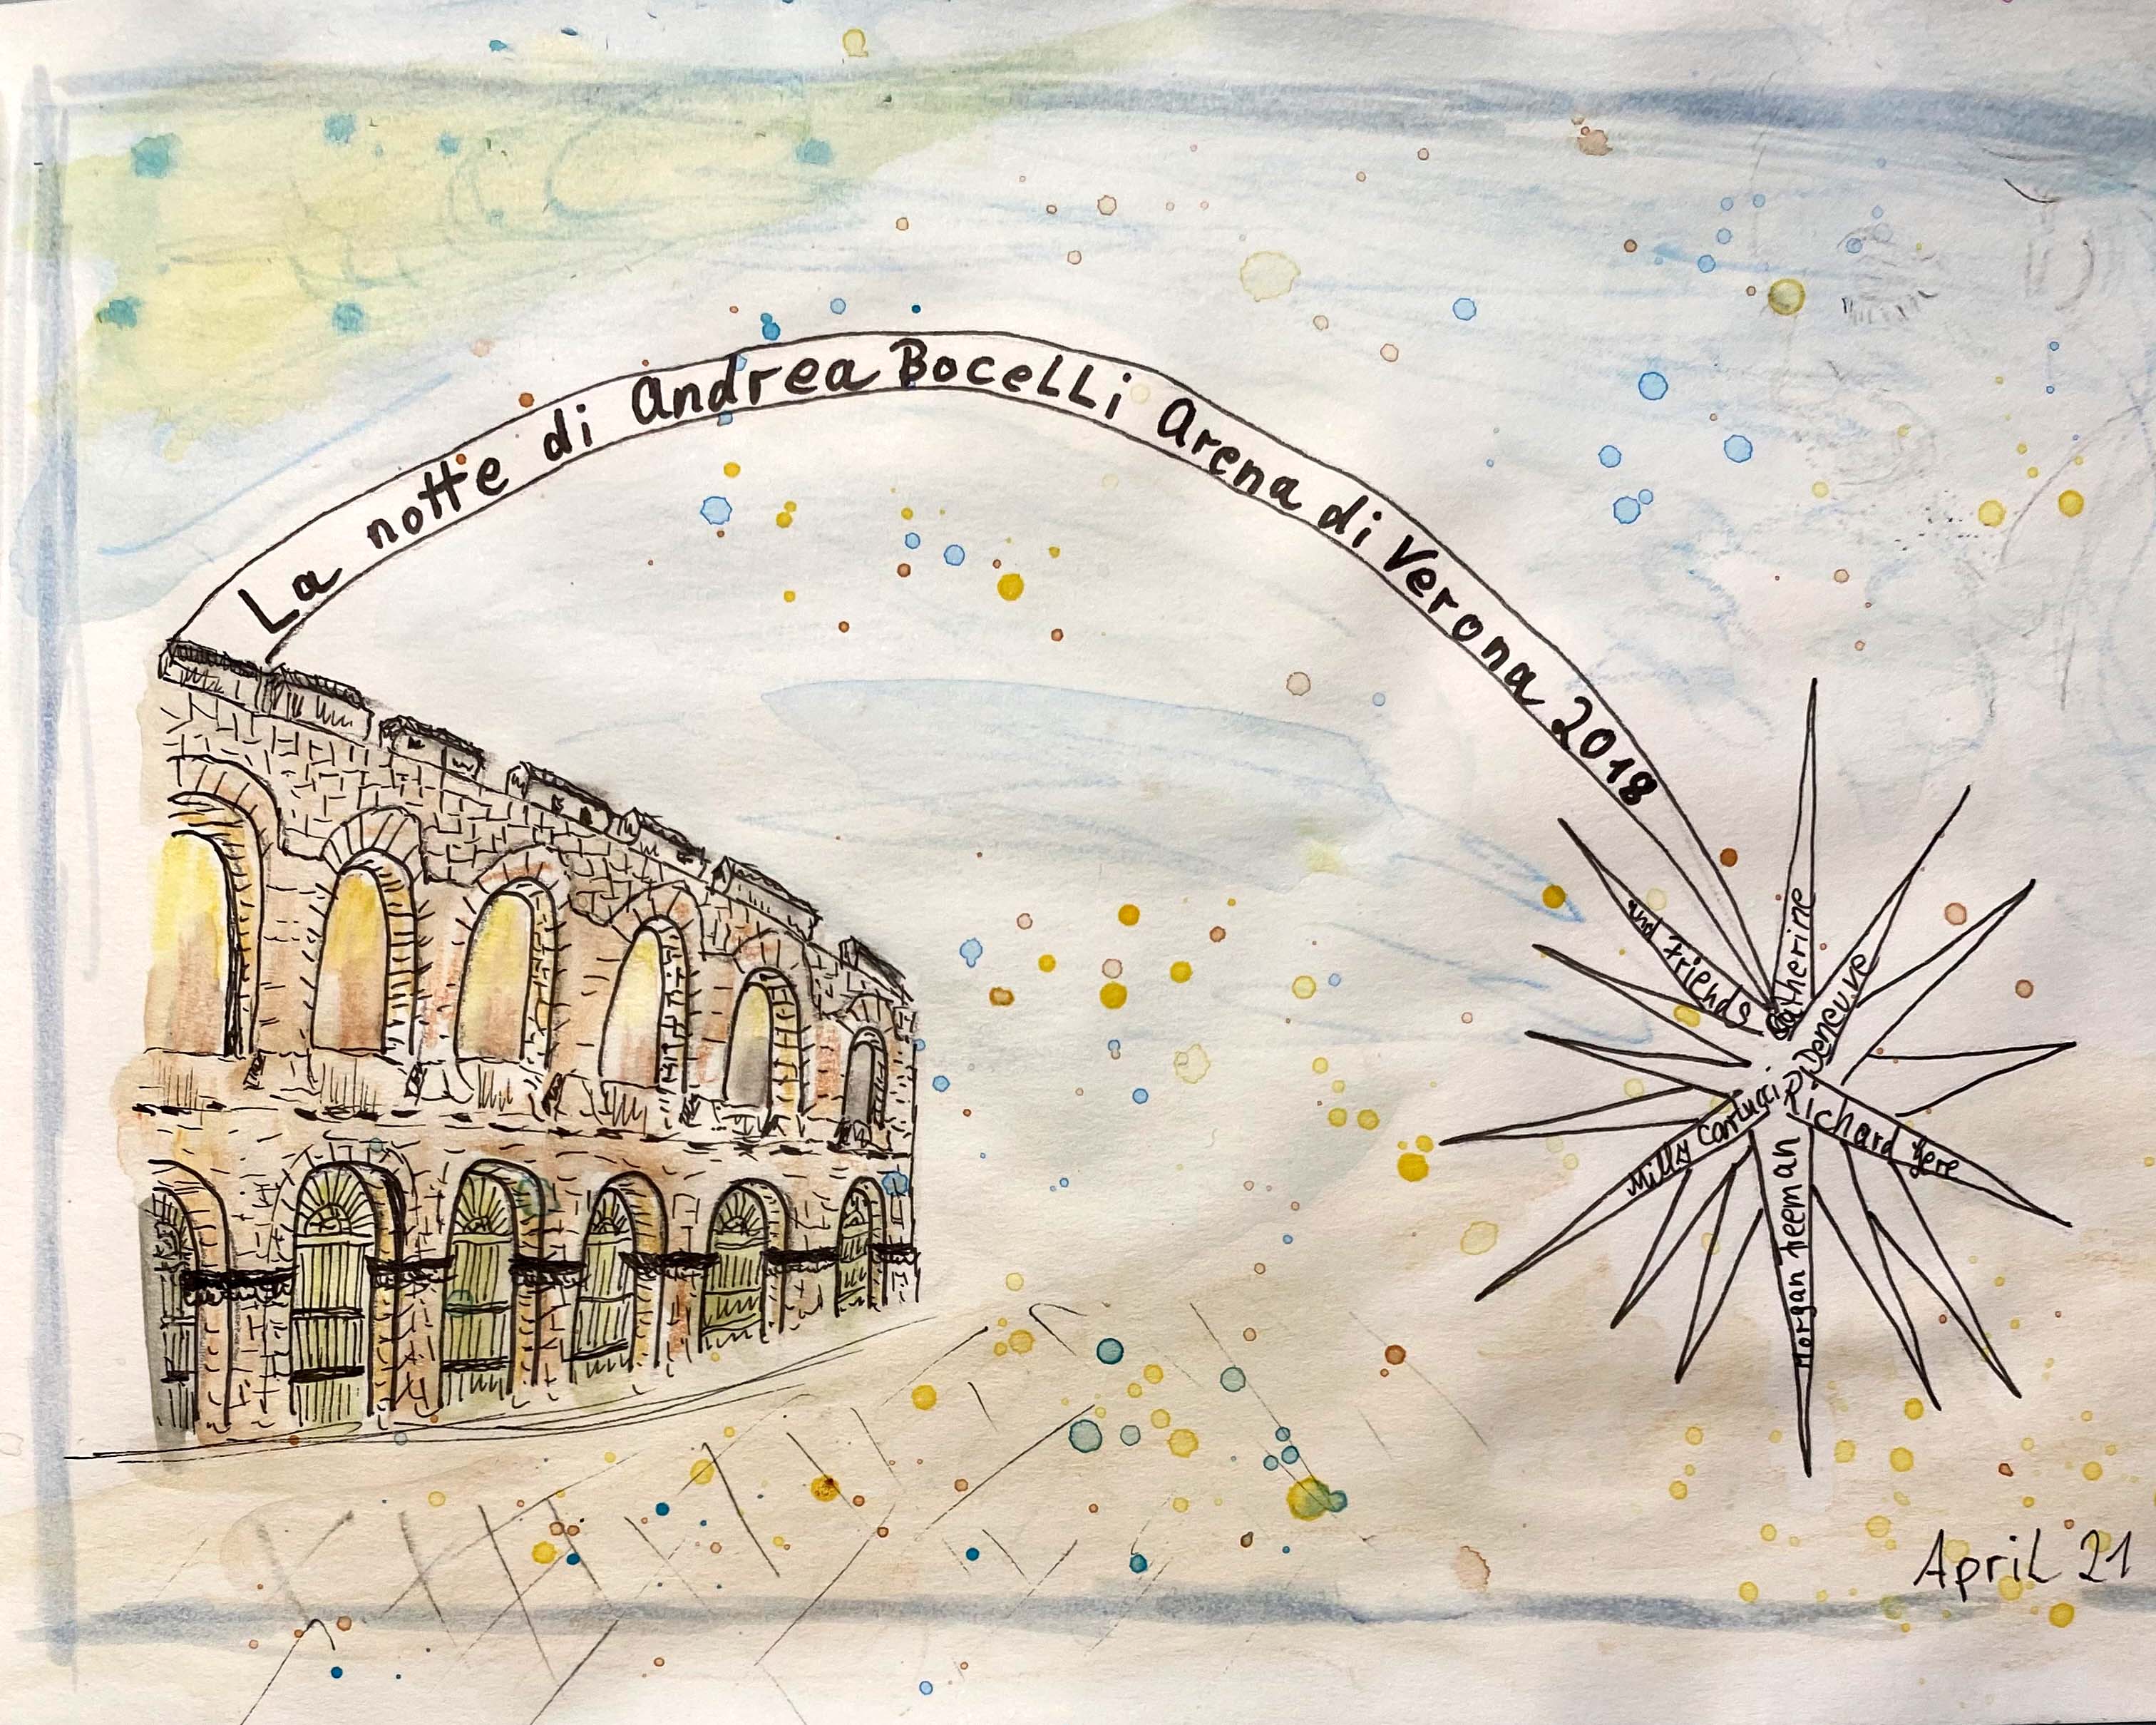 La notte di Andrea Bocelli Arena di Verona 2018
and Friends
Catherine
Deneuve
Richard Gere
Morgan Freeman
Milly Carlucci
April 21